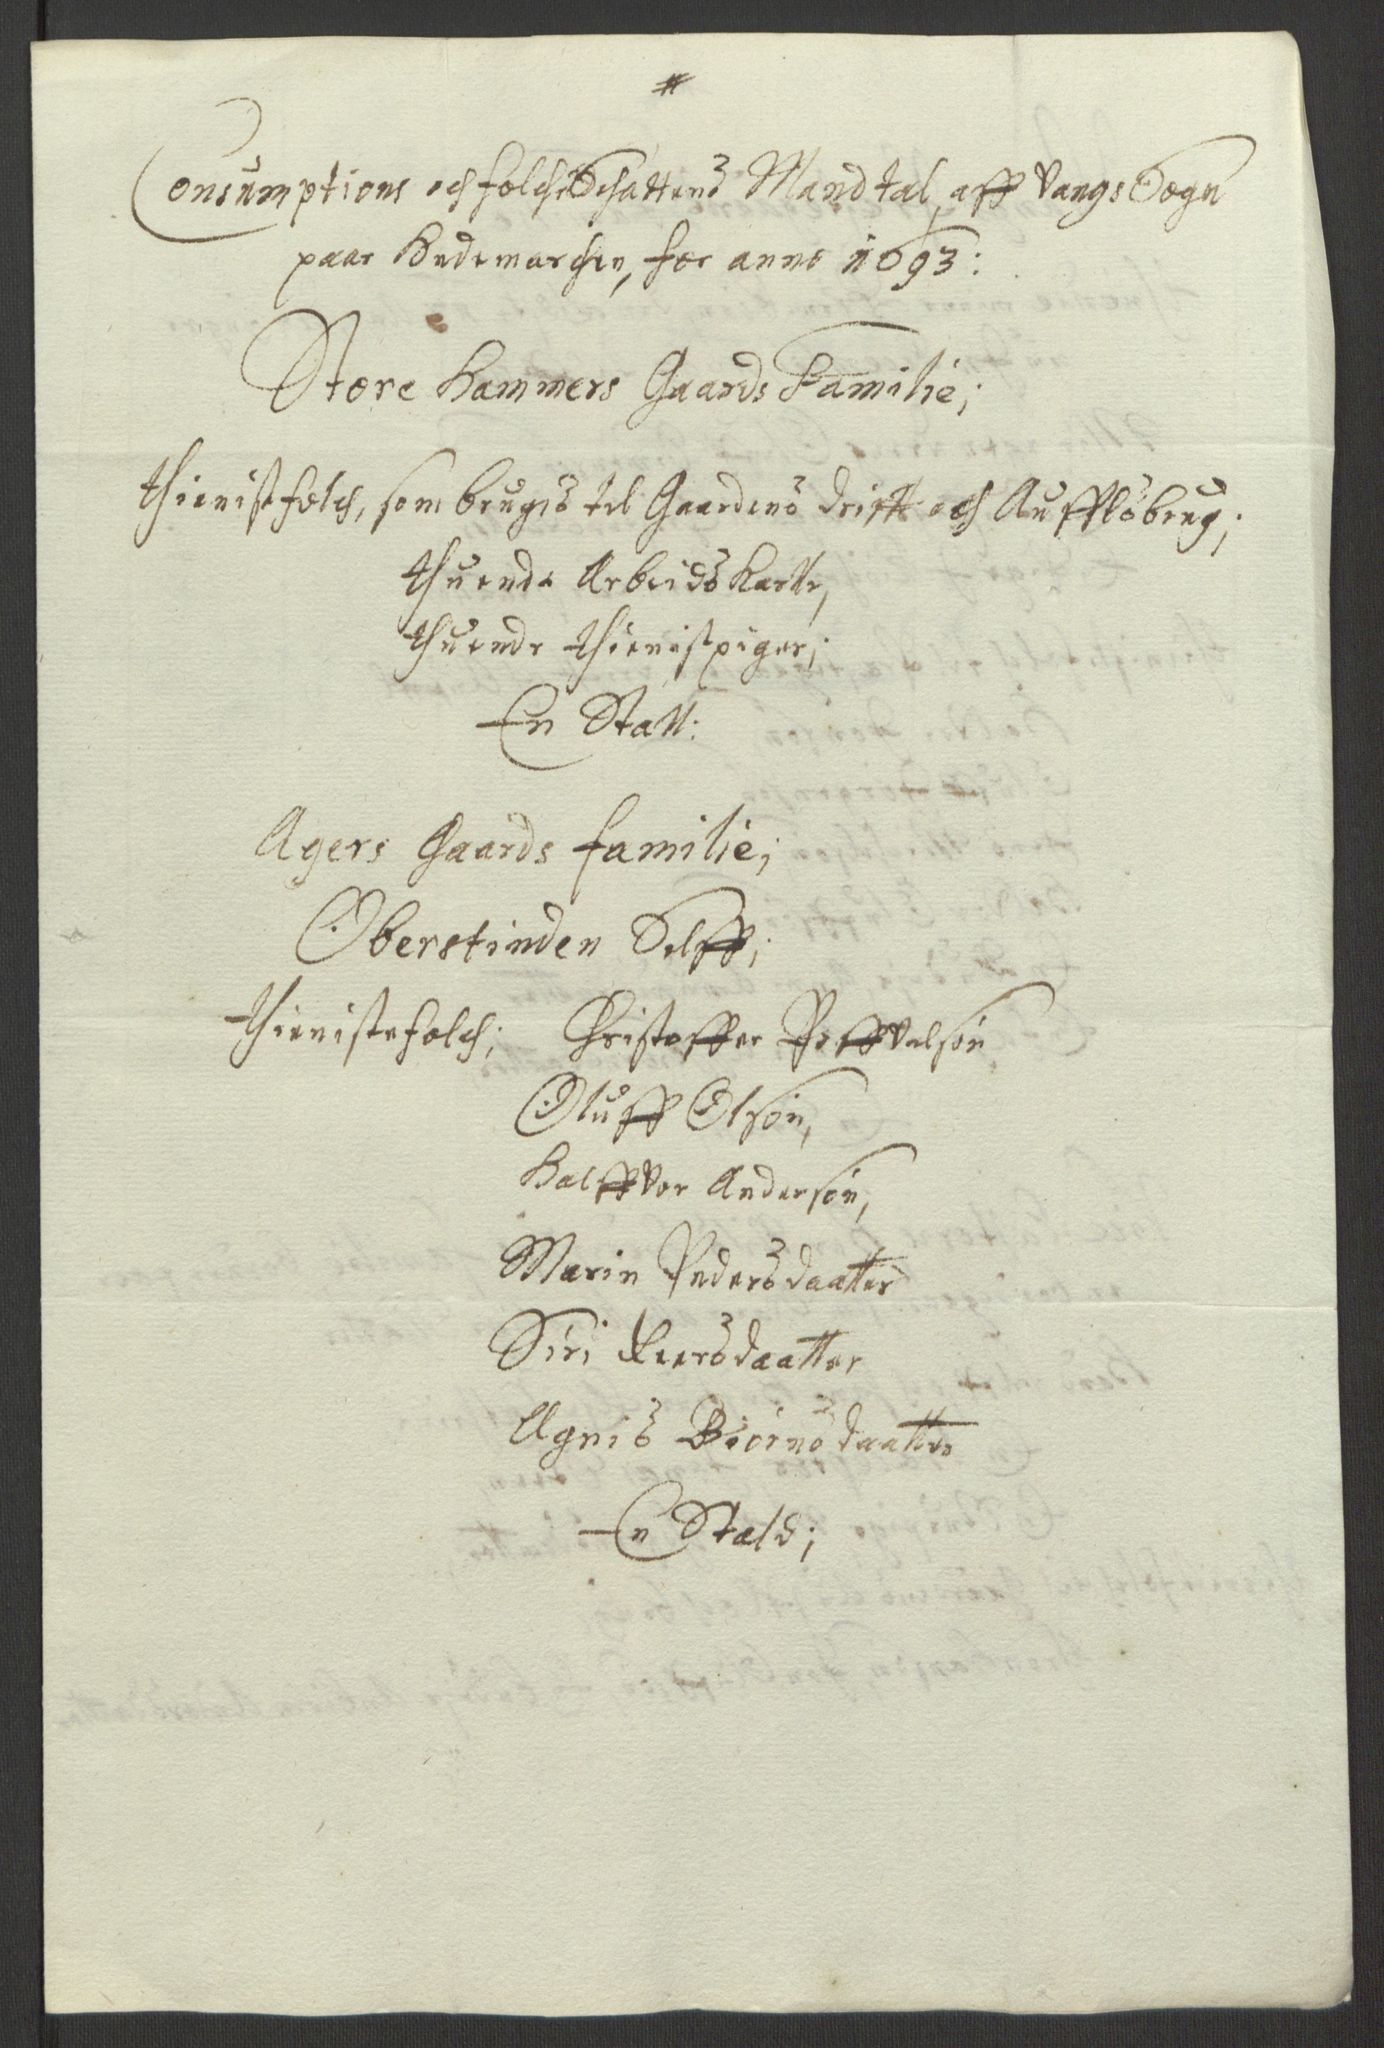 Consumptions och folche Schattens Mandtal, aff Vangs Sogn
paar Hedemarchen, for anno 1693:
Store Hammers Gaards Familie;
thienistfolch, som brugis til Gaardens drifft och Auffls brug;
thuende Arbeids Karle,
thuende thienistpiger;
En Stall:
Agers Gaards familie;
Oberstinden Selff;
thienistefolch; Christoffer Poffvelsøn
Oluff Olsøn,
Halffvor Andersøn,
Marin Pedersdaatter
Siri Iversdaatter
Agnis Biørnsdaatter
En Stald;